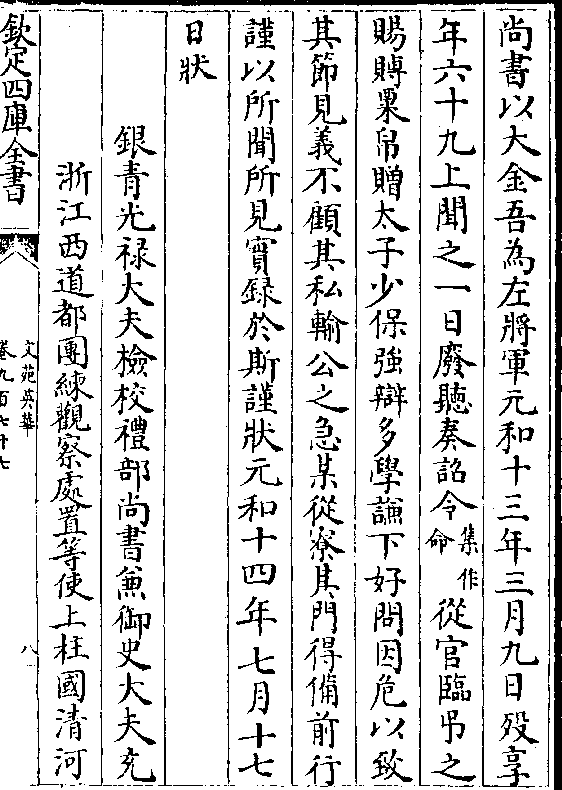 尚書以大金吾為左將軍元和十三年三月九日歿享
年六十九上聞之一日廢聽奏詔令集作命從官臨弔之
賜賻粟帛贈太子少保強辯多學謙下好問因危以致
其節見義不顧其私輸公之急某從寮其門得備前行
謹以所聞所見實録於斯謹狀元和十四年七月十七
日狀
銀青光禄大夫檢校禮部尚書兼御史大夫充
浙江西道都團練觀察處置等使上柱國清河
欽定四庫全書
文苑英華
卷九百七十七
八